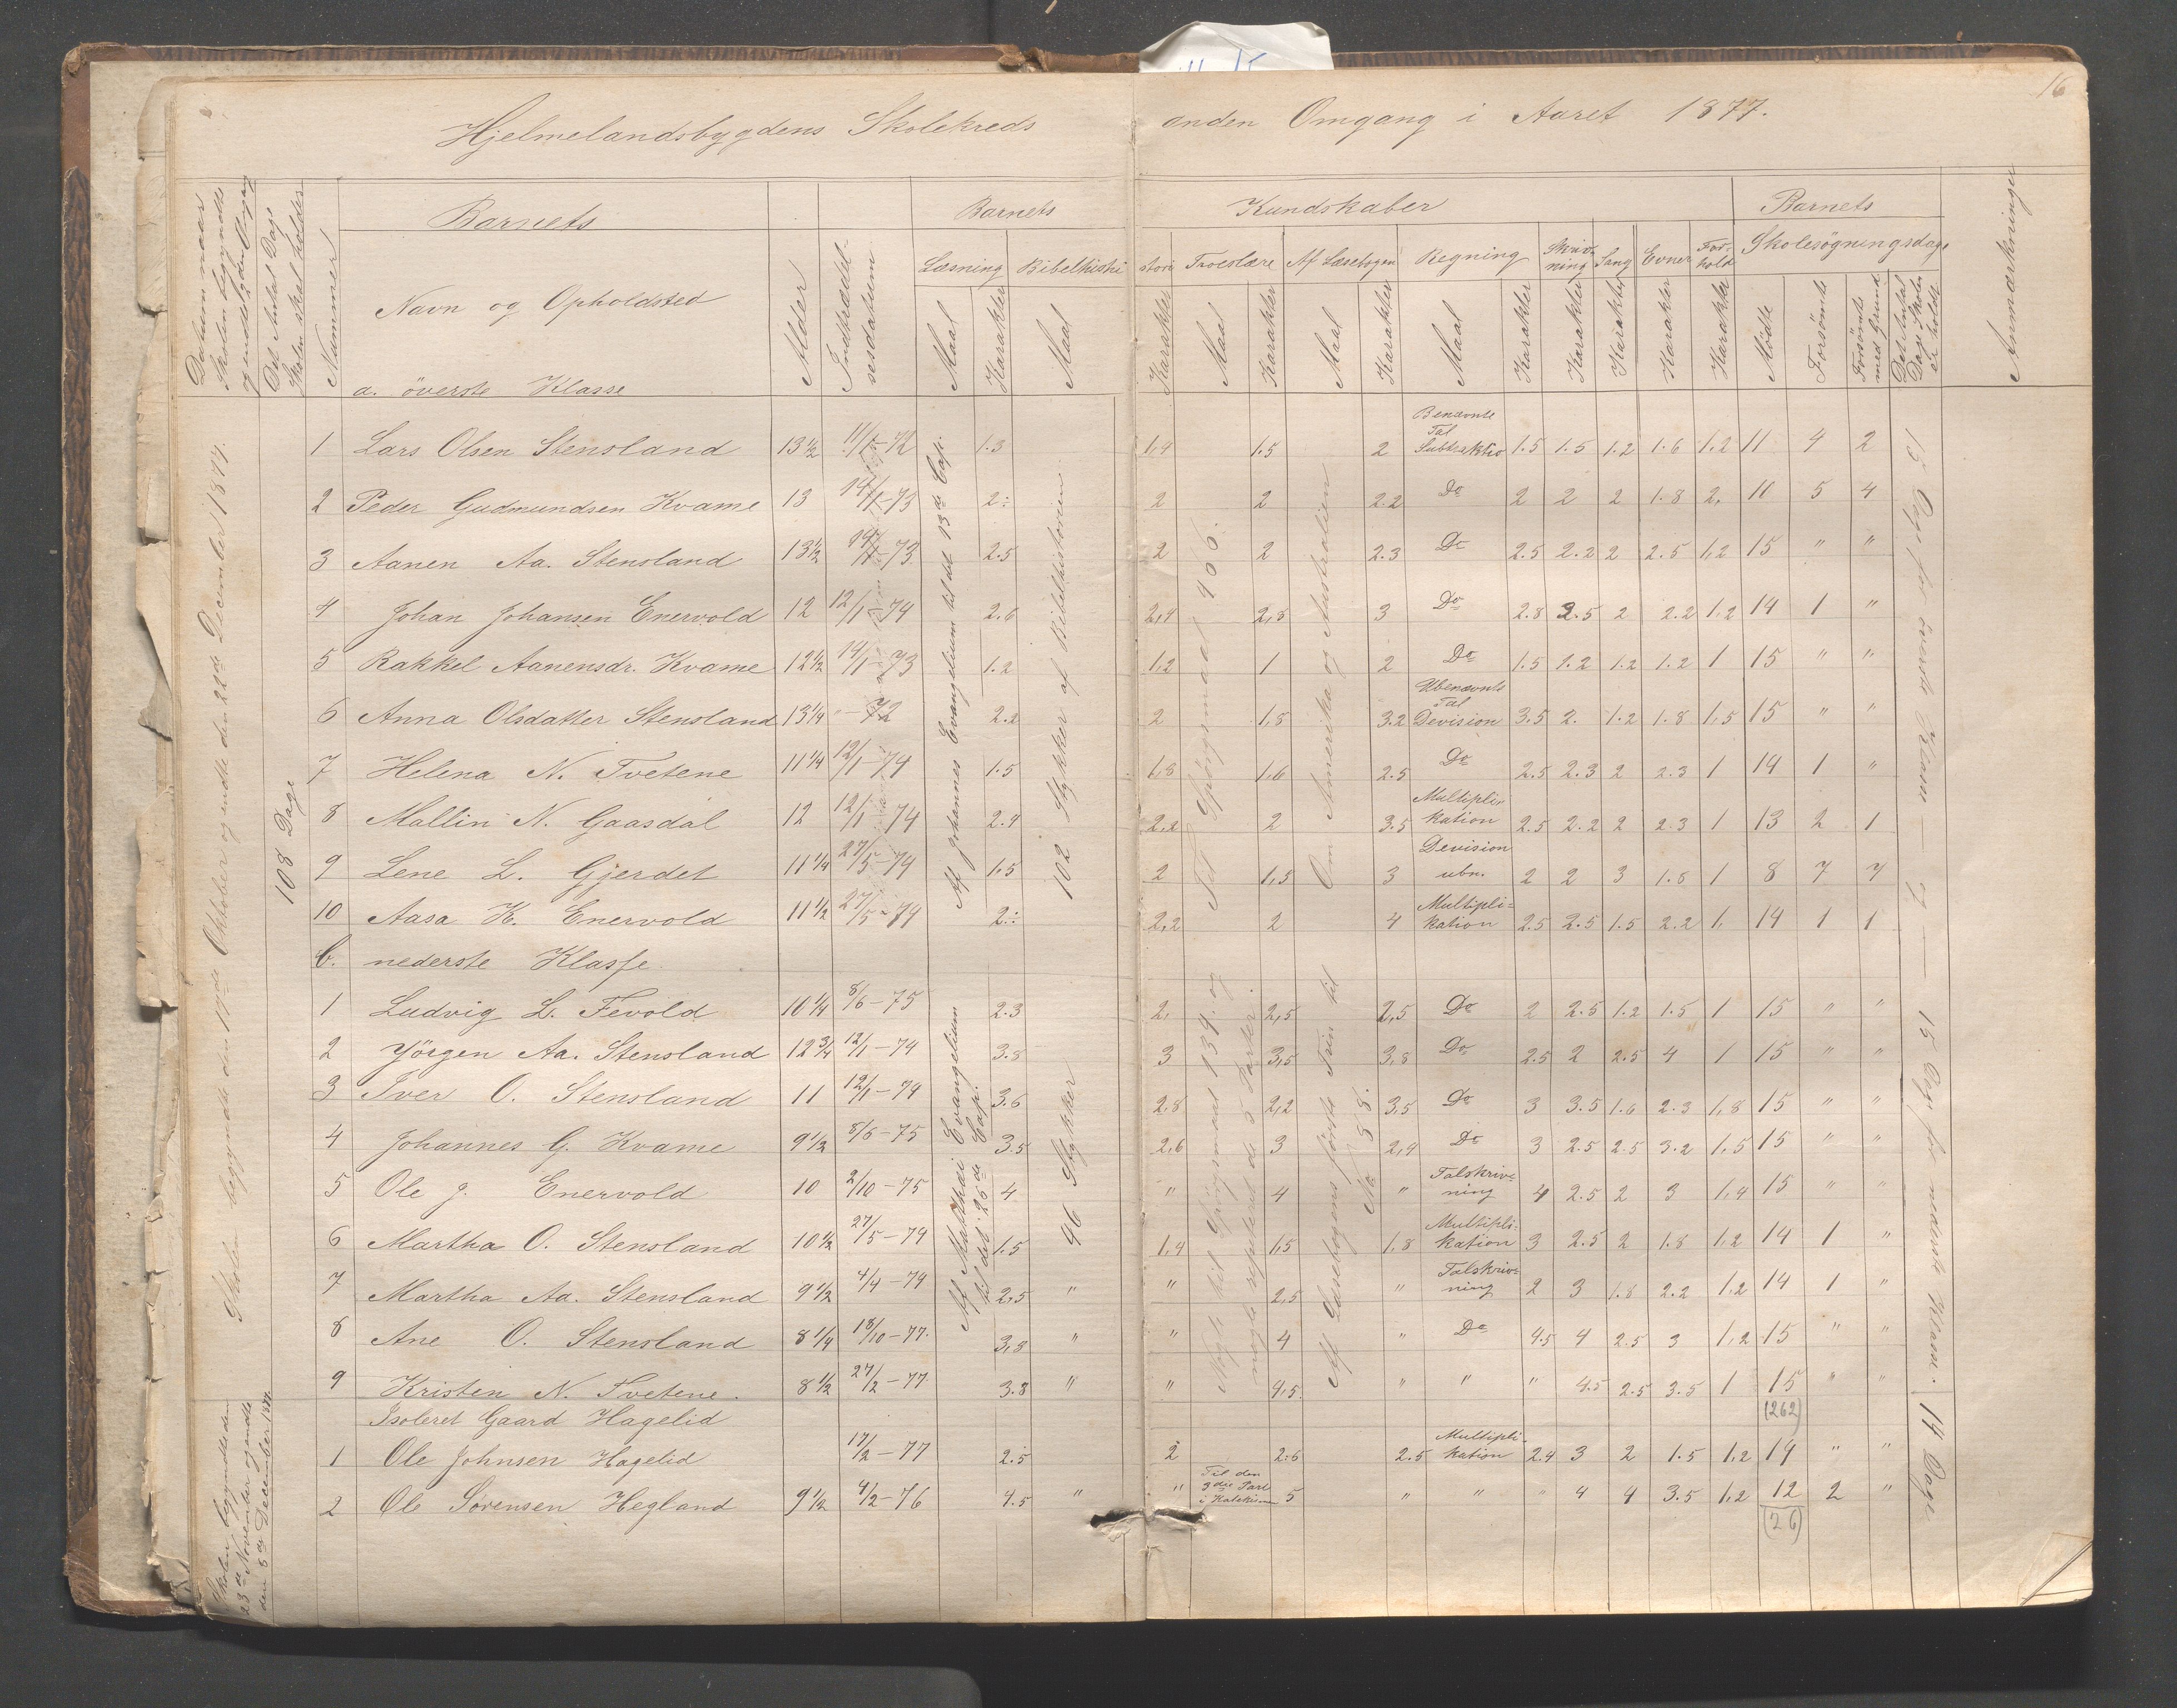 16
Hjelmelandsbygdens Skolekreds anden Omgang i Aaret 1877.
Datum naar Skolen begyndte og endte hver Omgang
Det Antal Dage Skolen skal holdes
Nummer
Barnets
Navn og Opholdsted
a. överste Klasse
Alder
Indtrædelsesdatum
Barnets Kundskaber
Læsning Maal Karakter
Bibelhistori Maal Karakter
Troeslære Maal Karakter
Af Læsebogen Maal Karakter
Regning Maal Karakter
Skrivning Karakter
Sang Karakter
Evner Karakter
Forhold Karakter
Barnets Skolesögningsdage
Mödte
Forsömte
Forsömte med Grund
Det Antal Dage Skolen er holdt
Anmærkninger
Skolen begyndte den 17de Oktober og endte den 22de December 1877.
108 Dage
Af Johannes Evangelium til det 13de Cap.
102 Stykker af Bibelhistorien
Til Spörgsmaal 406.
Om Amerika og Australien
15 Dage for överste Klasse og 15 Dage for nederste Klasse.
1 Lars Olsen Stensland 13½ 11/1-72 1.3 1,4 1.5 2 Benævnte Tal Subtraktio 1.5 1.5 1.2 1.6 1.2 11 4 2
2 Peder Gudmundsen Kvame 13 14/1-73 2: 2 2 2.2 Do 2 2 2 1.8 2. 10 5 4
3 Aanen Aa. Stensland 13½ 14/1-73 2.5 2 2 2.3 Do 2.5 2.2 2 2.5 1,2 15 " "
4 Johan Johansen Enervold 12 12/1-74 2,6 2,4 2,8 3 Do 2.8 2.5 2 2.2 1,2 14 1 "
5 Rakkel Aanensdr. Kvame 12½ 14/1-73 1.2 1,2 1 2 Do 1.5 1.2 1.2 1.2 1 15 " "
6 Anna Olsdatter Stensland 13¼ "-72 2.2 2 1,8 3.2 Ubenævnte Tal Devision 3.5 2. 1.2 1.8 1,5 15 " "
7 Helena N. Tvetene 11¼ 12/1-74 1.5 1,8 1,6 2.5 Do 2.5 2.3 2 2.3 1 14 1 "
8 Mallin N. Gaasdal 12 12/1-74 2.4 2,2 2 3.5 Multiplikation 2.5 2.2 2 2.3 1 13 2 1
9 Lene L. Gjerdet 11¼ 27/5-74 1,5 2 1,5 3 Devision ubn. 2 2 3 1.8 1 8 7 7
10 Aasa K. Enervold 11½ 27/5-74 2: 2,2 2 4 Multiplikation 2.5 2.5 1.5 2.2 1, 14 1 1
b. nederste Klasse.
Af Matthæi Evangelium til det 26de Cap.
46 Stykker
Nyt til Spörgsmaal 134. og nogle repeteret de 5 Parter.
Af Læsebogens förste Trin til No 58.
1 Ludvig L. Tevold 10¼ 8/6-75 2.3 2, 2,5 2,5 Do 2 2.5 1.2 1.5 1 15 " "
2 Jörgen Aa. Stensland 12¾ 12/1-74 3.8 3 3,5 3,8 Do 2.5 2 2.5 4 1 15 " "
3 Iver O. Stensland 11 12/1-74 3.6 2.8 2,2 3,5 Do 3 3.5 1.6 2.3 1,8 15 " "
4 Johannes G. Kvame 9½ 8/6-75 3.5 2,6 3 2,9 Do 3 2.5 2.5 3.2 1,5 15 " "
5 Ole J. Enervold 10 2/10-75 4 " 4 " Talskrivning 4 2.5 2 3 1,4 15 " "
6 Martha O. Stensland 10½ 27/5-74 1.5 1,4 1,5 1,8 Multiplikation 3 2.5 2 1.8 1,2 14 1 "
7 Martha Aa. Stensland 9½ 4/4-79 2,5 " " 2,5 " Talskrivning 2 3 1.8 2.2 1,2 14 1 "
8 Ane O. Stensland 8¼ 18/10-77. 3,8 " " 4 " Do 4.5 4 2.5 3 1,2 15 " "
9 Kristen N. Tvetene. 8½ 27/2-77 3.8 " " 4,5. " " " 4.5 2.5 3.5 1 15 " "
(262)
Isoleret Gaard Hagelid
Skolen begyndte den 23de November og endte den 5de December 1877.
14 Dage
1 Ole Johnsen Hagelid 17/2-77 2.5 2 2.6 2.5 Multiplikation 2.4 3 2 1.5 1,2 14 " "
2 Ole Sörensen Hegland 9½ 4/2-76 4.5 " " Til den 3die Part i Katekismen 5 " " " 4 4 3.5 1,2 12 2 "
(26)